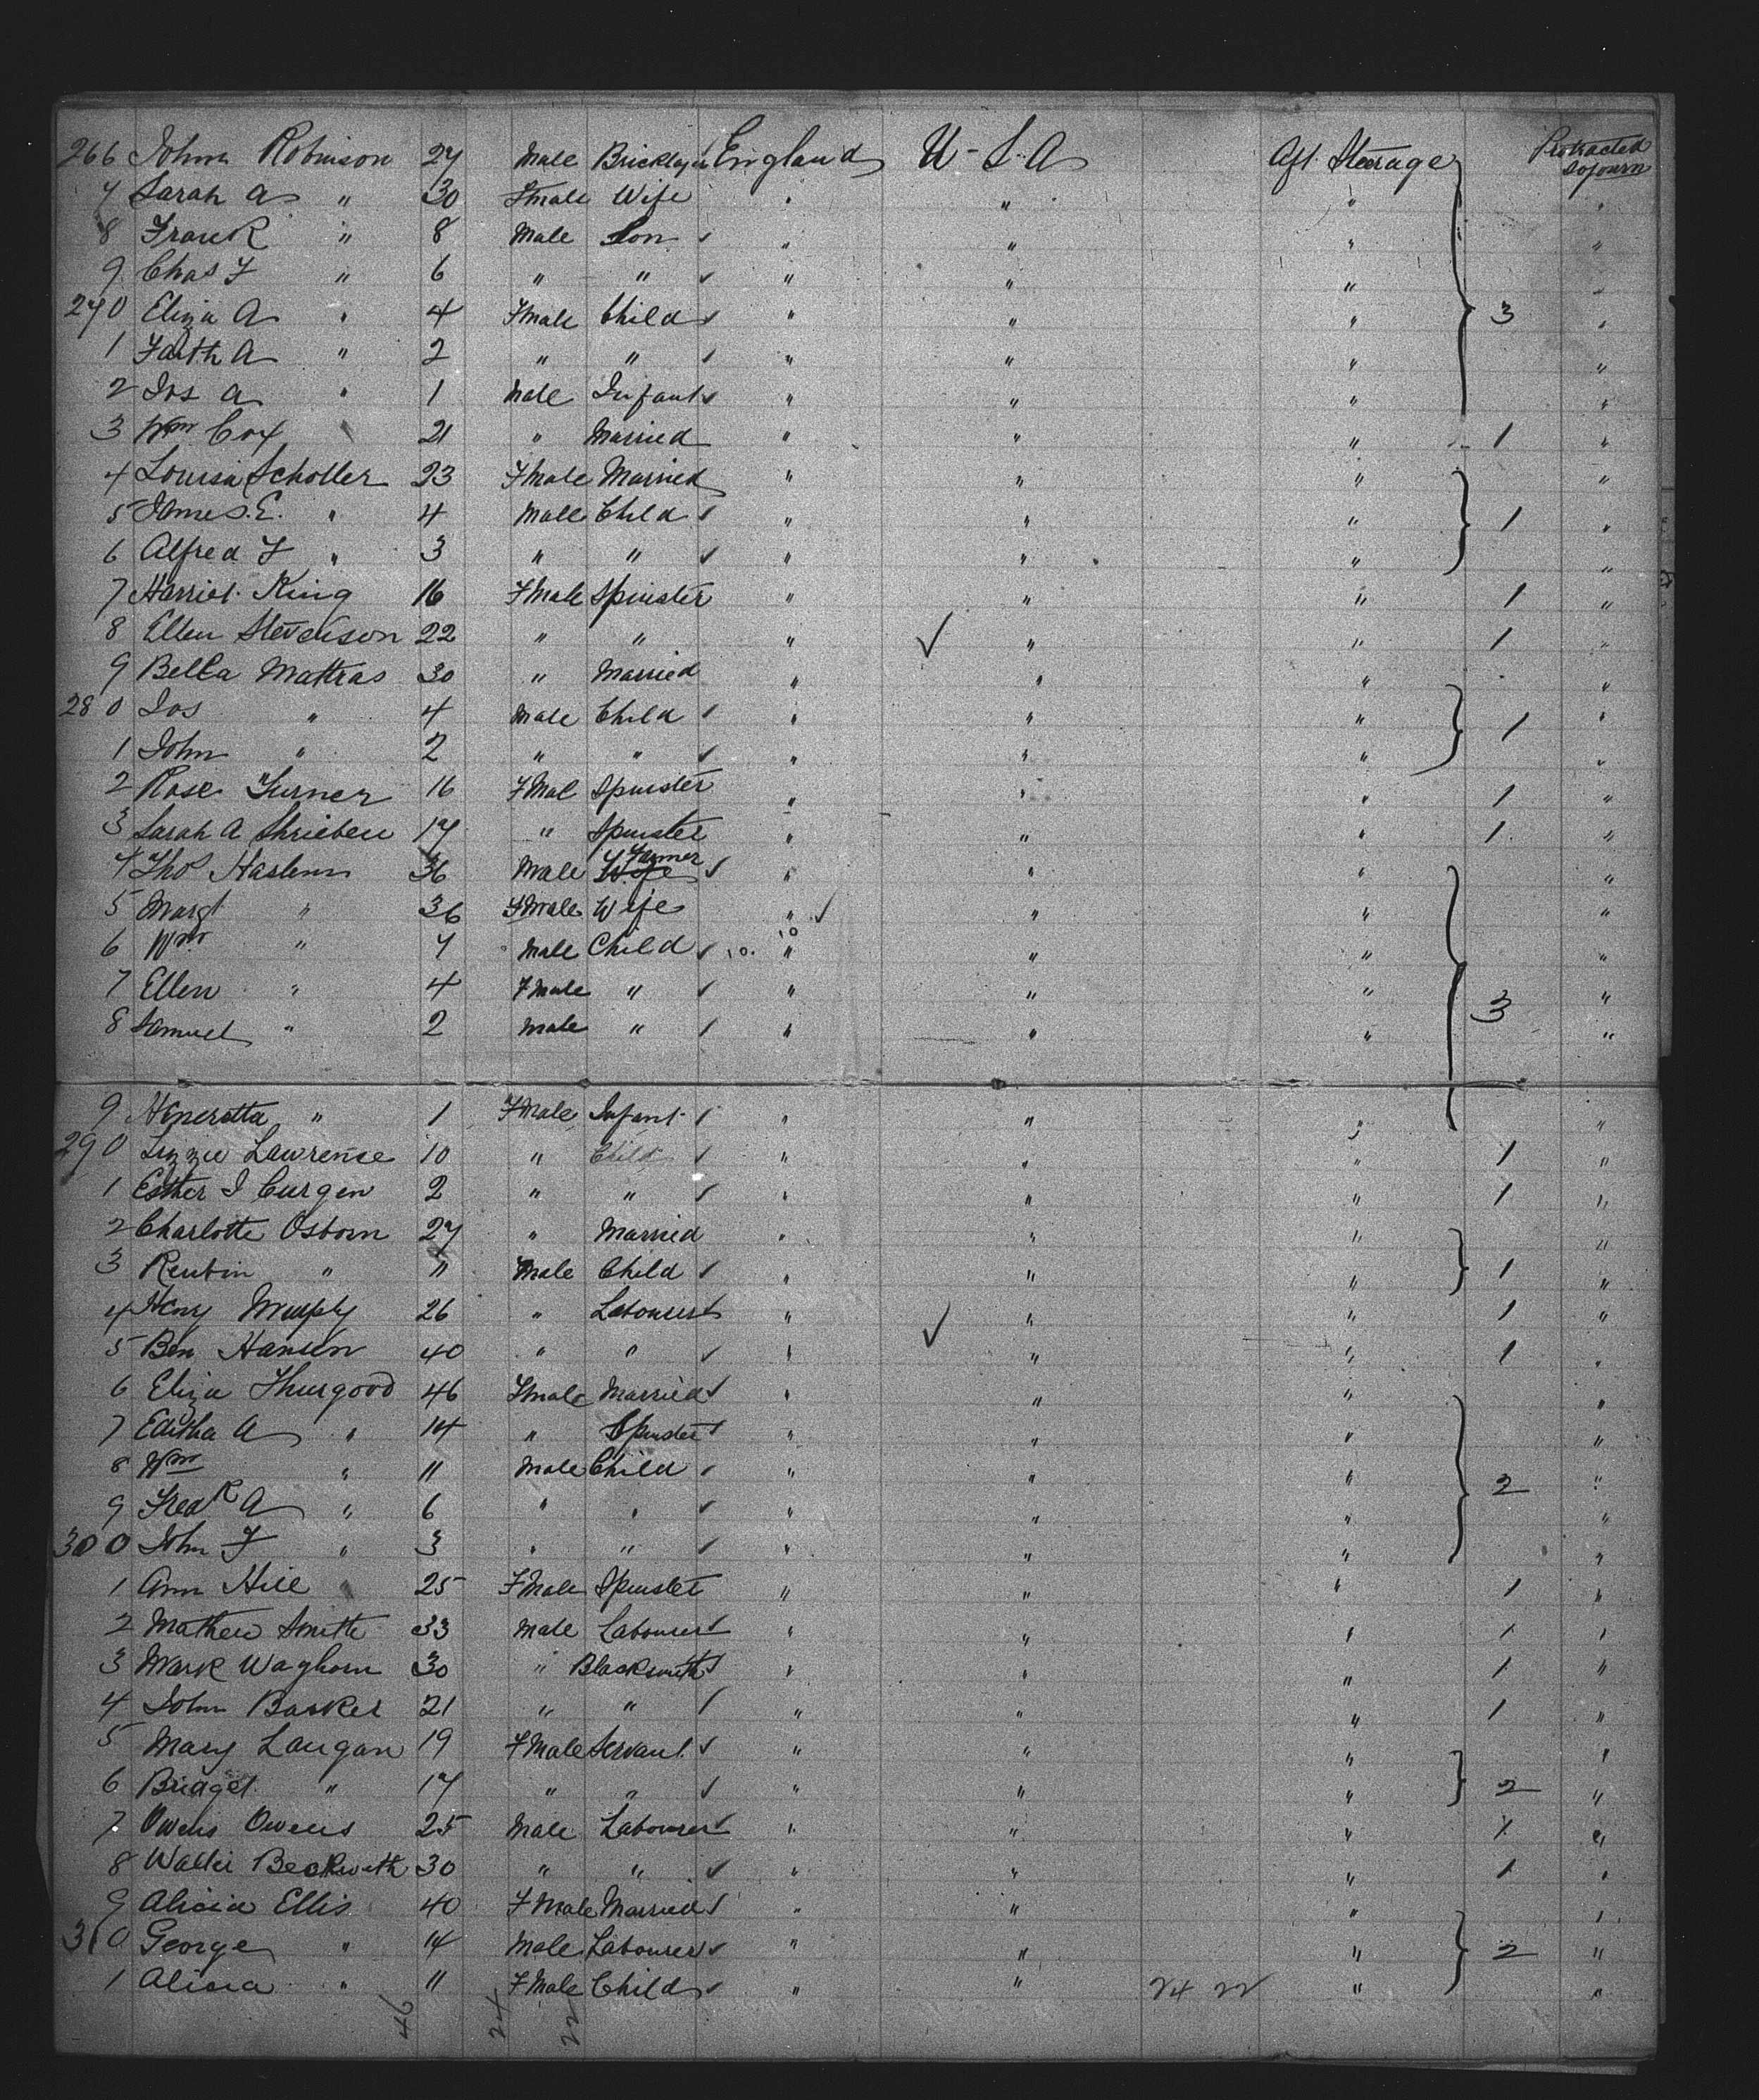 266 John Robinson 27 Male Bricklayer England U-S.A Aft Steerage Protracted Sojourn
7 Sarah A " 30 Fmale Wife " " " "
8 Frank " 8 Male Son ✓ " " " "
9 Chas F " 6 " " ✓ " " " "
270 Eliza A " 4 Fmale Child ✓ " " " 3 "
1 Faith A " 2 " " ✓ " " " "
2 Jos A " 1 Male Infant ✓ " " " "
3 Wm Cox 21 " Married " " " 1 "
4 Louisa Scholler 23 Fmale Married " " " "
5 James. E. " 4 Male Child ✓ " " " 1 "
6 Alfred F " 3 " " ✓ " " " "
7 Harriet King 16 Fmale Spinster " " " 1 "
8 Ellen Stevenson 22 " " " ✓ " " 1 "
9 Bella Mattras 30 " Married " " " "
280 Jos " 4 Male Child ✓ " " " 1 "
1 John " 2 " " ✓ " " " "
2 Rose Turner 16 FMal Spinster " " " 1 "
3 Sarah A Shrieben 17 " Spinster " " " 1 "
4 Thos Haslem 36 Male Farmer ✓ " " " "
5 Margt " 36 Fmale Wife " ✓ " " "
6 Wm " 7 Male Child ✓ 10. 10 " " " "
7 Ellen " 4 Fmale " ✓ " " " 3 "
8 Samuel " 2 Male " ✓ " " " "
9 Hineratta " 1 Fmale Infant ✓ " " " "
290 Lizzie Lawrence 10 " Child ✓ " " " 1 "
1 Esther J Curgen 2 " " ✓ " " " 1 "
2 Charlotte Osborn 27 " Married " " " "
3 Reubin " 11 Male Child ✓ " " " 1 "
4 Heny Murphy 26 " Labourer ✓ " " " 1 "
5 Ben Hansen 40 " " ✓ " ✓ " " 1 "
6 Eliza Thurgood 46 Fmale Married ✓ " " " "
7 Editha A " 14 " Spinster ✓ " " " "
8 Wm " 11 Male Child ✓ " " " 2 "
9 Fredk A " 6 " " ✓ " " " "
300 John F " 3 " " ✓ " " " "
1 Ann Hill 25 Fmale Spinster " " " 1 "
2 Mathew Smith 33 Male Labourer ✓ " " " 1 "
3 Mark Waghorn 30 " Blacksmith ✓ " " " 1 "
4 John Barker 21 " " ✓ " " " 1 "
5 Mary Langan 19 FMale Servant ✓ " " " "
6 Bridget " 17 " " ✓ " " " 2 "
7 Owens Owens 25 Male Labourer ✓ " " " 1 "
8 Walter Beckwith 30 " " ✓ " " " 1 "
9 Alicia Ellis 40 FMale Married ✓ " " " "
310 George " 14 Male Labourer ✓ " " " 2 "
1 Alicia " 11 FMale Child ✓ " " 24 22 " "
46 24 22